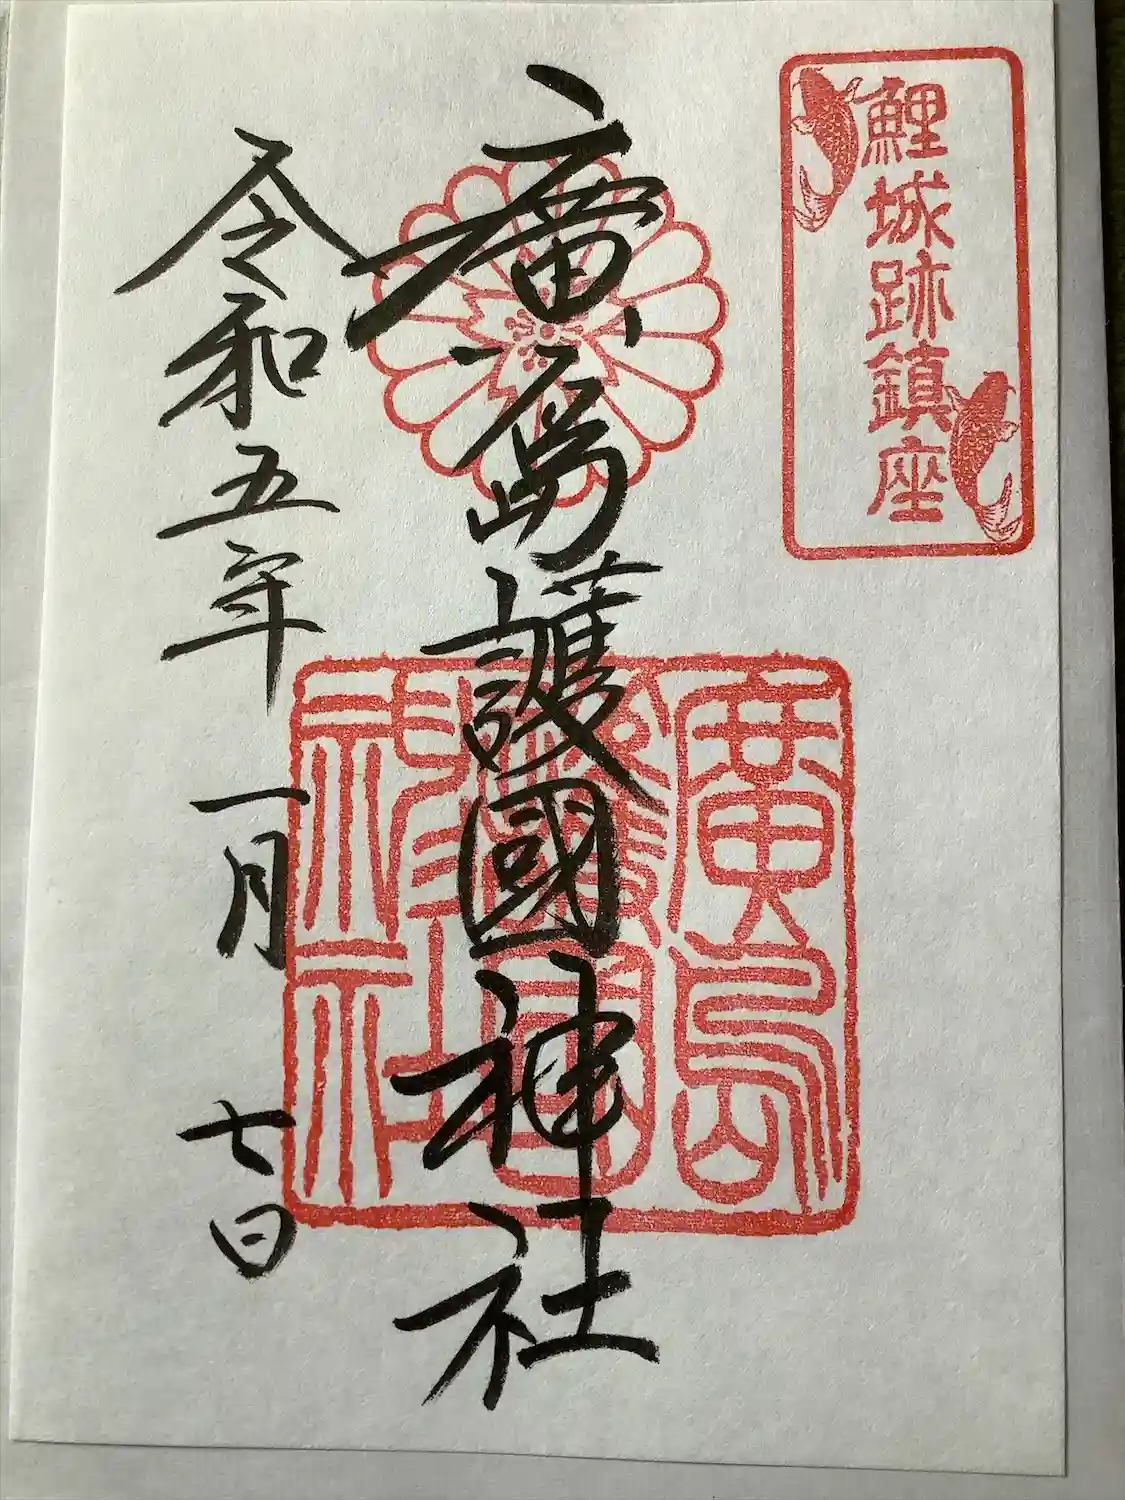 鯉城跡鎮座
廣島護國神社
廣島
護國
神社
令和五年一月七日